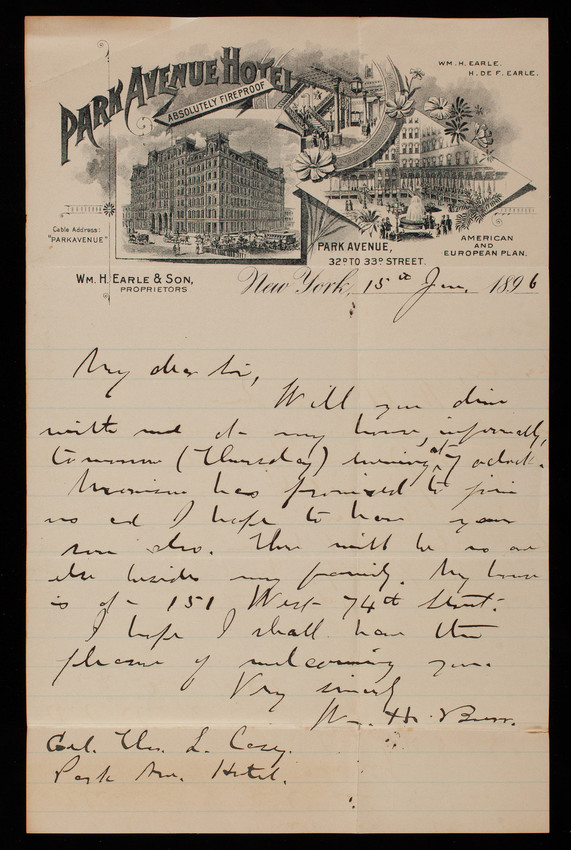 PARK AVENUE HOTEL
ABSOLUTELY FIREPROOF
WM. H. EARLE.
H. DE F. EARLE.
Cable Address:
"PARKAVENUE"
PARK AVENUE,
32D TO 33D STREET.
AMERICAN
AND
EUROPEAN PLAN.
WM. H. EARLE & SON,
PROPRIETORS
New York, 15th Jan. 1896
My dear Sir,
Will you dine
with me at my house, informally,
tomorrow (Thursday) evening at 7 o'clock.
has promised to join
us and I hope to have your
son also. There will be no one
else besides my family. My house
is at 151 West 74th Street.
I hope I shall have the
pleasure of welcoming you.
Very sincerely
Wm. H. Burr.
Thos. L. Casey.
Park Ave. Hotel.